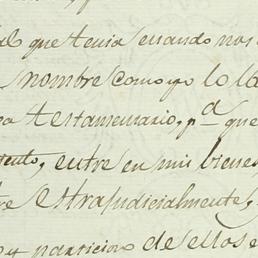 que tenia quando nos
nombre como yo lo
testamentario, pa que
entre en mis bienes
estrajudicialmente,
y particion de ellos